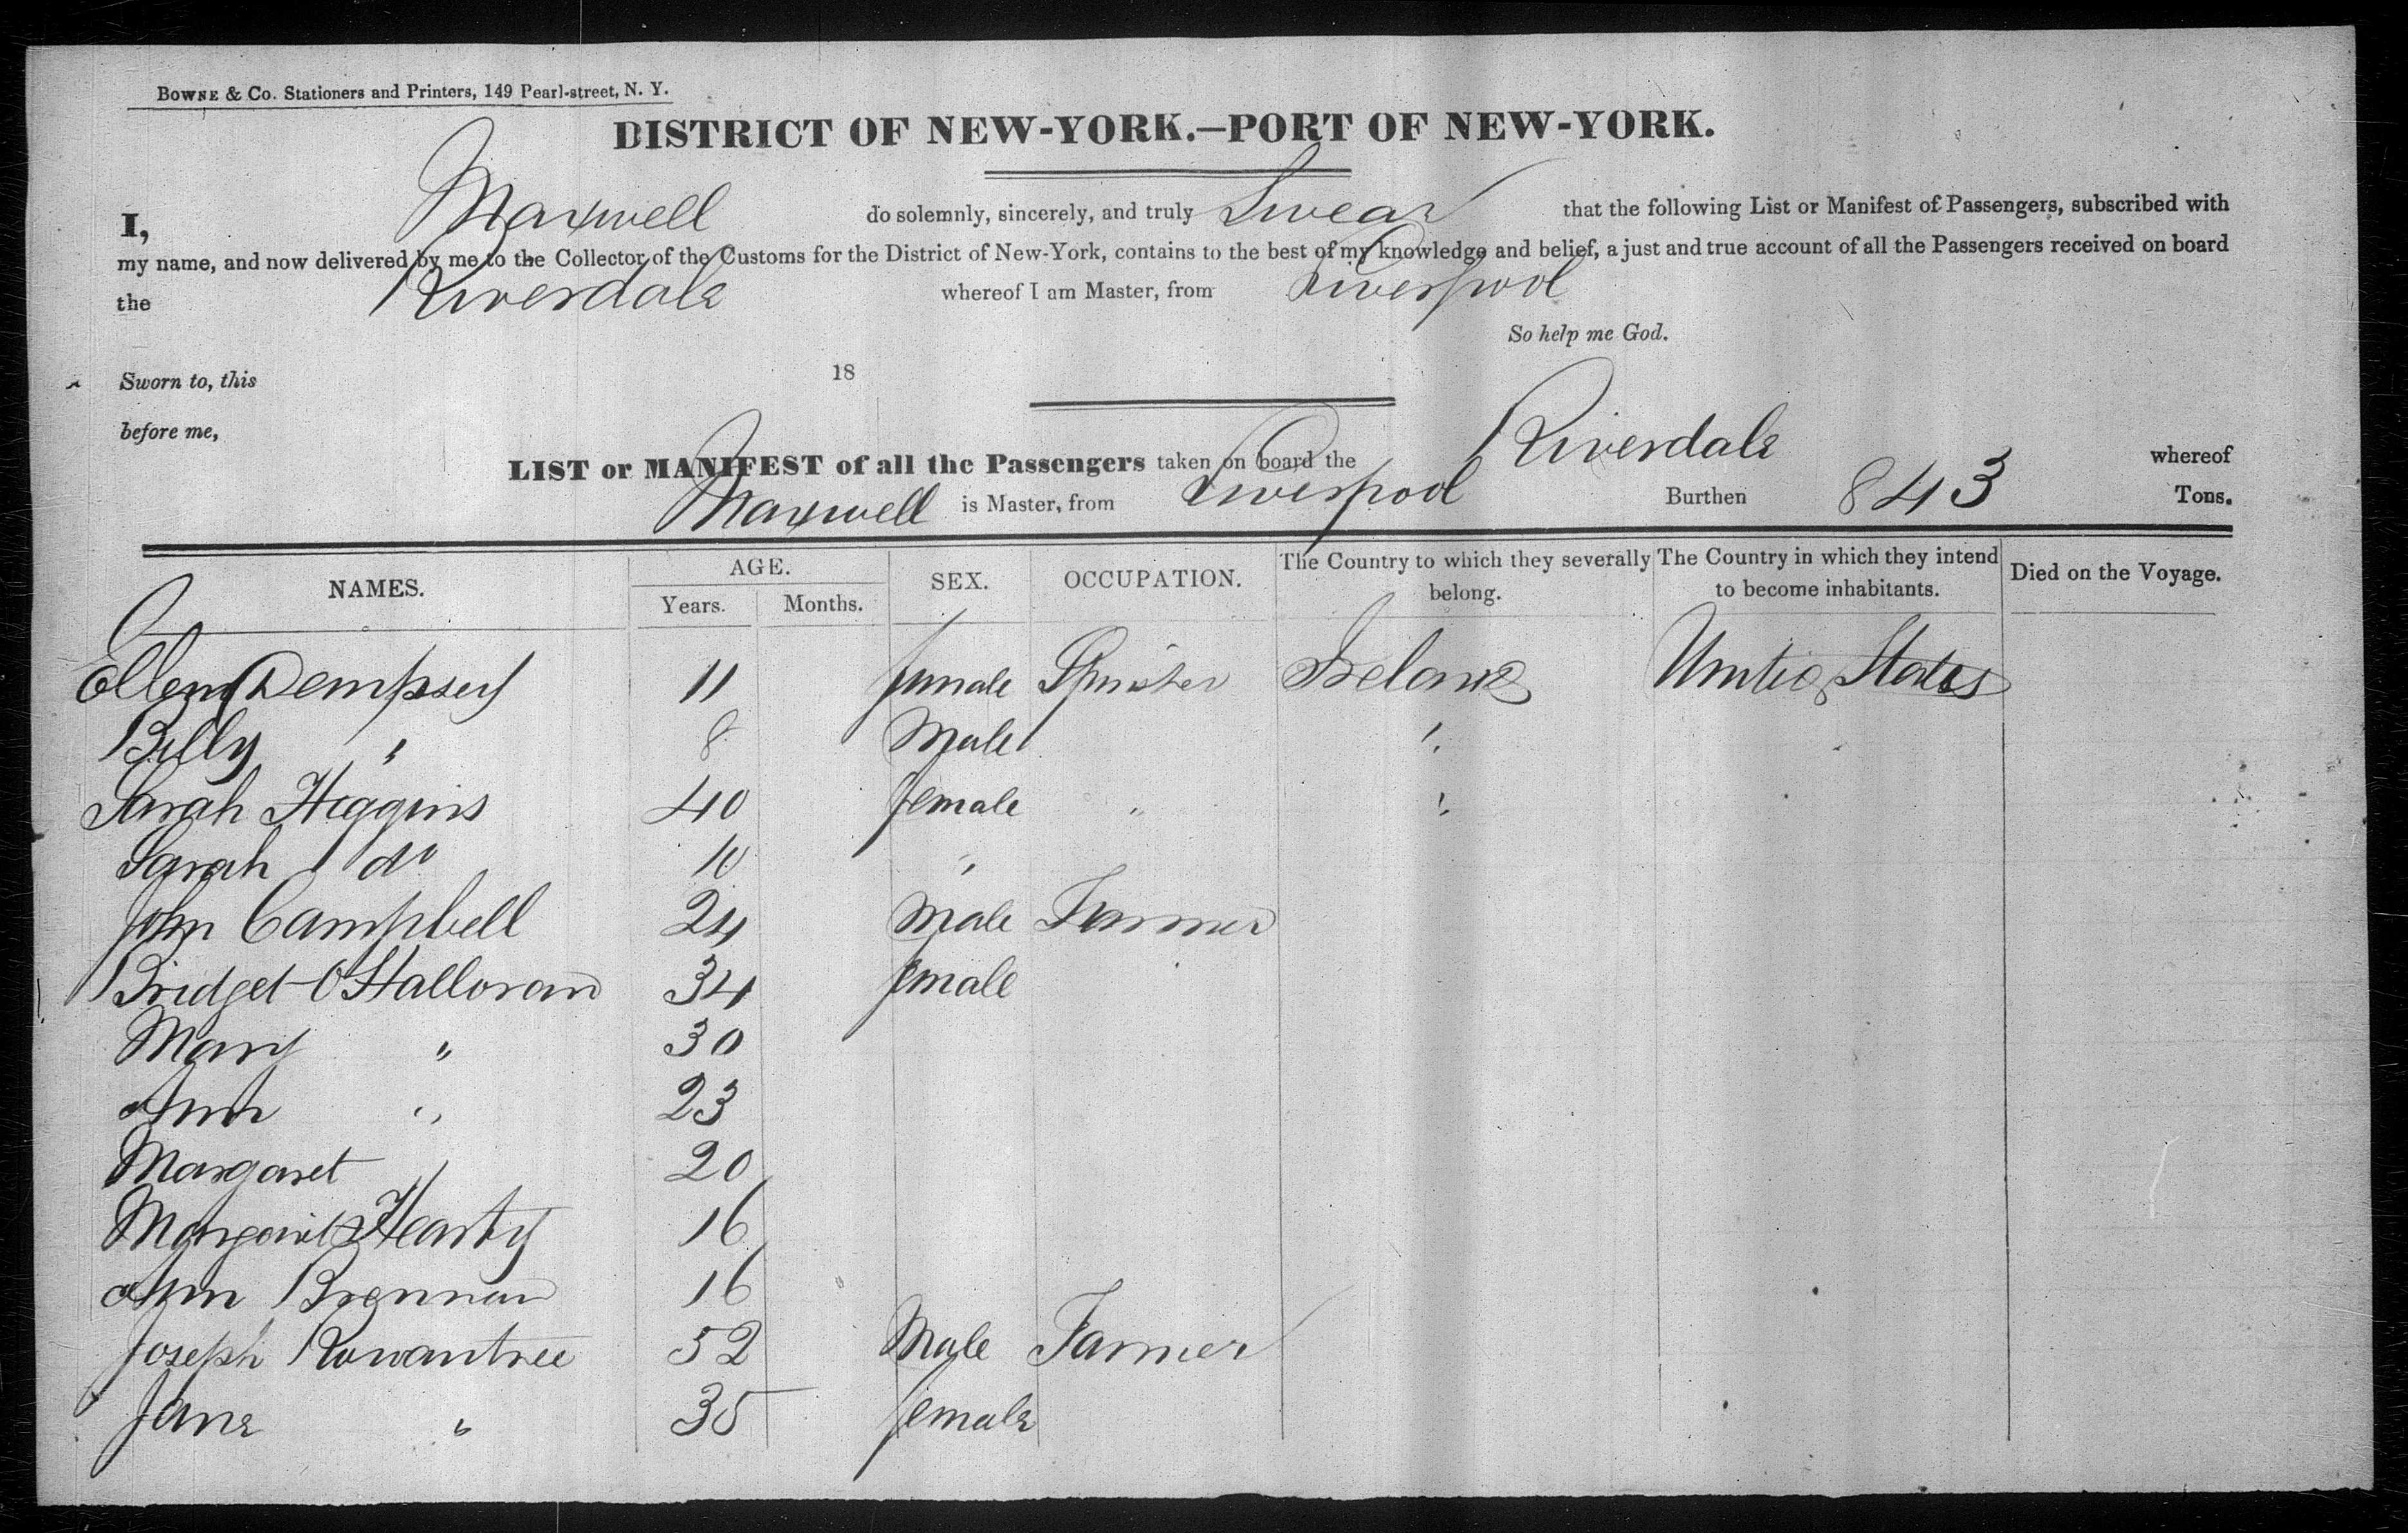 BOWNE & CO. Stationers and Printers, 149 Pearl-street, N. Y.
DISTRICT OF NEW-YORK.—PORT OF NEW-YORK.
I, Maxwell do solemnly, sincerely, and truly Swear that the following List or Manifest of Passengers, subscribed with
my name, and now delivered by me to the Collector of the Customs for the District of New-York, contains to the best of my knowledge and belief, a just and true account of all the Passengers received on board
the Riverdale whereof I am Master, from Liverpool
So help me God.
Sworn to, this 18
before me,
LIST or MANIFEST of all the Passengers taken on board the Riverdale whereof
Maxwell is Master, from Liverpool Burthen 843 Tons.
NAMES. AGE. SEX. OCCUPATION. The Country to which they severally belong. The Country in which they intend to become inhabitants. Died on the Voyage.
Years. Months.
Ellen Dempsey 11 female Spinster Ireland United States
Billy " 8 Male "
Sarah Higgins 40 female " "
Sarah do 10 "
John Campbell 24 Male Farmer
Bridget O'Halloran 34 female
Mary " 30
Ann " 23
Margaret 20
Margaret Hearty 16
Ann Brennan 16
Joseph Rowantree 52 Male Farmer
Jane " 35 female